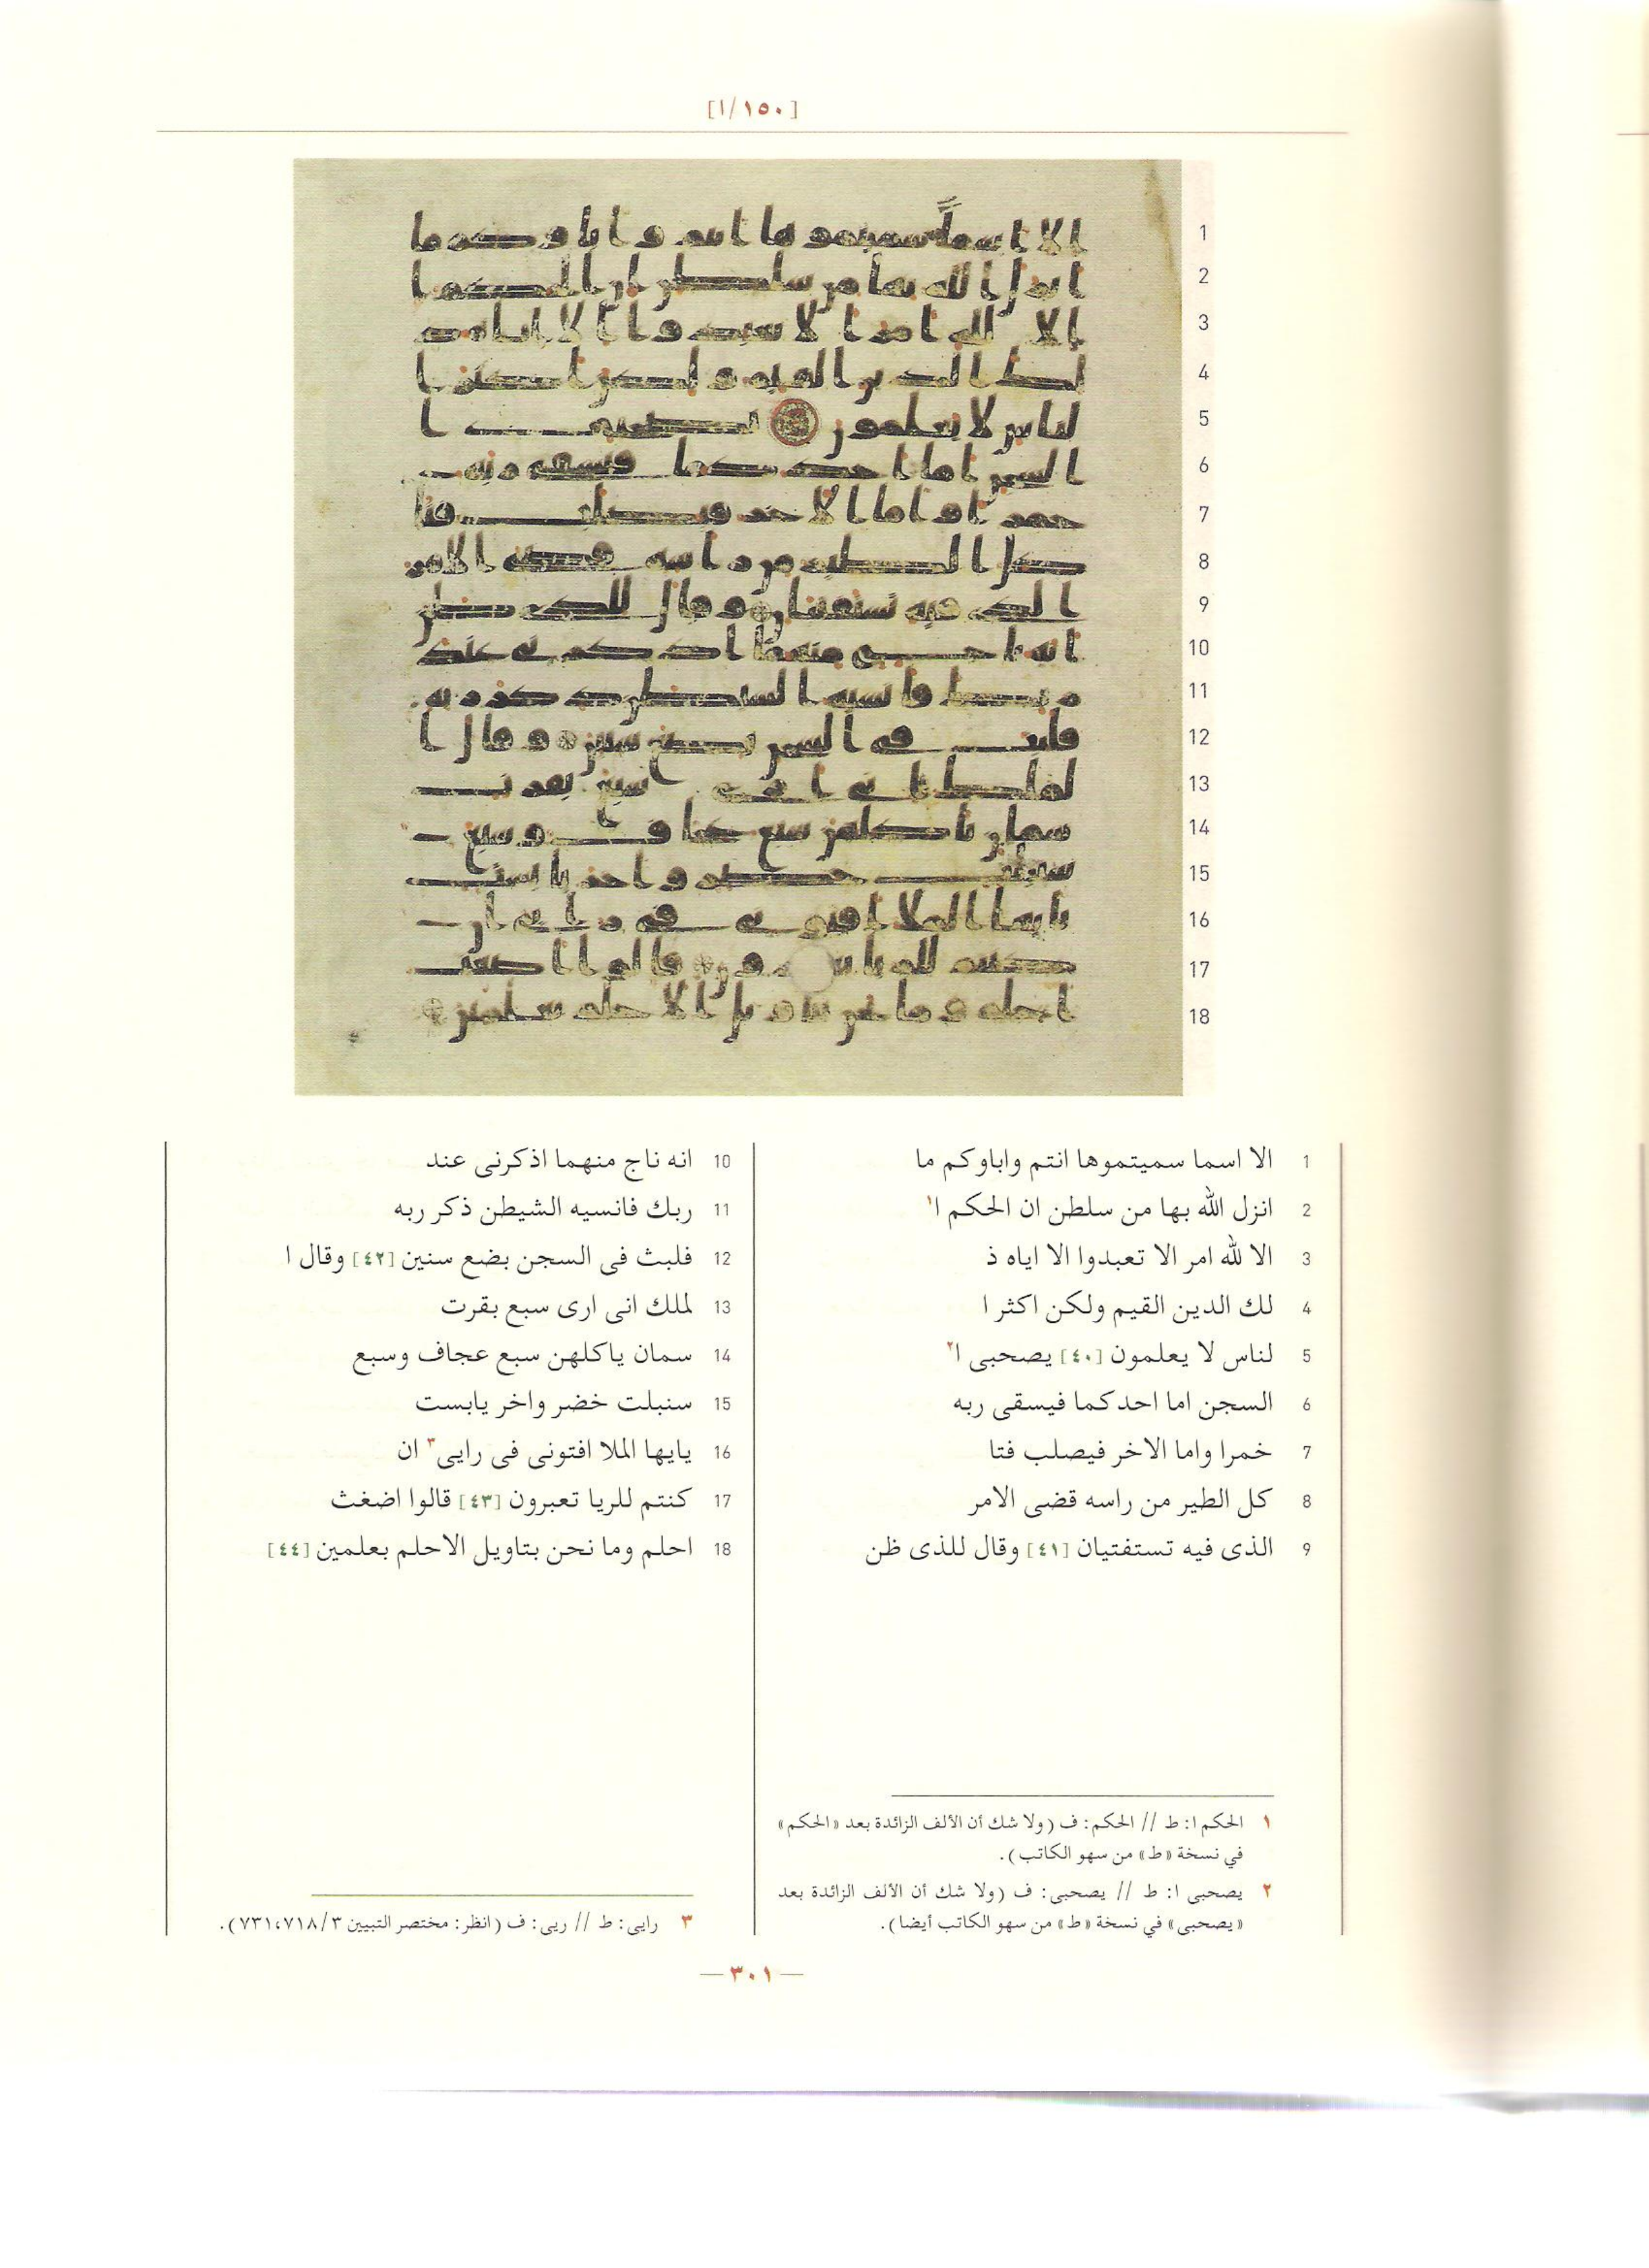 [١/١٥٠]
1 الا اسما سميتموها انتم واباوكم ما
2 انزل الله بها من سلطن ان الحكم ا١
3 الا لله امر الا تعبدوا الا اياه ذ
4 لك الدين القيم ولكن اكثر ا
5 لناس لا يعلمون [٤٠] يصحبى ا٢
6 السجن اما احدكما فيسقى ربه
7 خمرا واما الاخر فيصلب فتا
8 كل الطير من راسه قضى الامر
9 الذى فيه تستفتيان [٤١] وقال للذى ظن
10 انه ناج منهما اذكرنى عند
11 ربك فانسيه الشيطن ذكر ربه
12 فلبث فى السجن بضع سنين [٤٢] وقال ا
13 لملك انى ارى سبع بقرت
14 سمان ياكلهن سبع عجاف وسبع
15 سنبلت خضر واخر يابست
16 يايها الملا افتونى فى رايى٣ ان
17 كنتم للريا تعبرون [٤٣] قالوا اضغث
18 احلم وما نحن بتاويل الاحلم بعلمين [٤٤]
١ الحكم ا: ط // الحكم: ف (ولا شك أن الألف الزائدة بعد «الحكم»
في نسخة «ط» من سهو الكاتب).
٢ يصحبى ا: ط // يصحبى: ف (ولا شك أن الألف الزائدة بعد
«يصحبى» في نسخة «ط» من سهو الكاتب أيضا).
٣ رايى: ط // ريى: ف (انظر: مختصر التبيين ٣/٧١٨، ٧٣١).
— ٣٠١ —